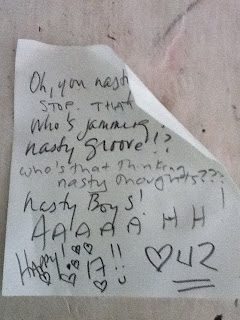 Oh, you nasty
STOP. THAT
Who's jamming
nasty groove!?
who's that thinking
nasty thoughts???
nasty Boys!
AAAAA HH!
HAPPY! 17!!
♡U2